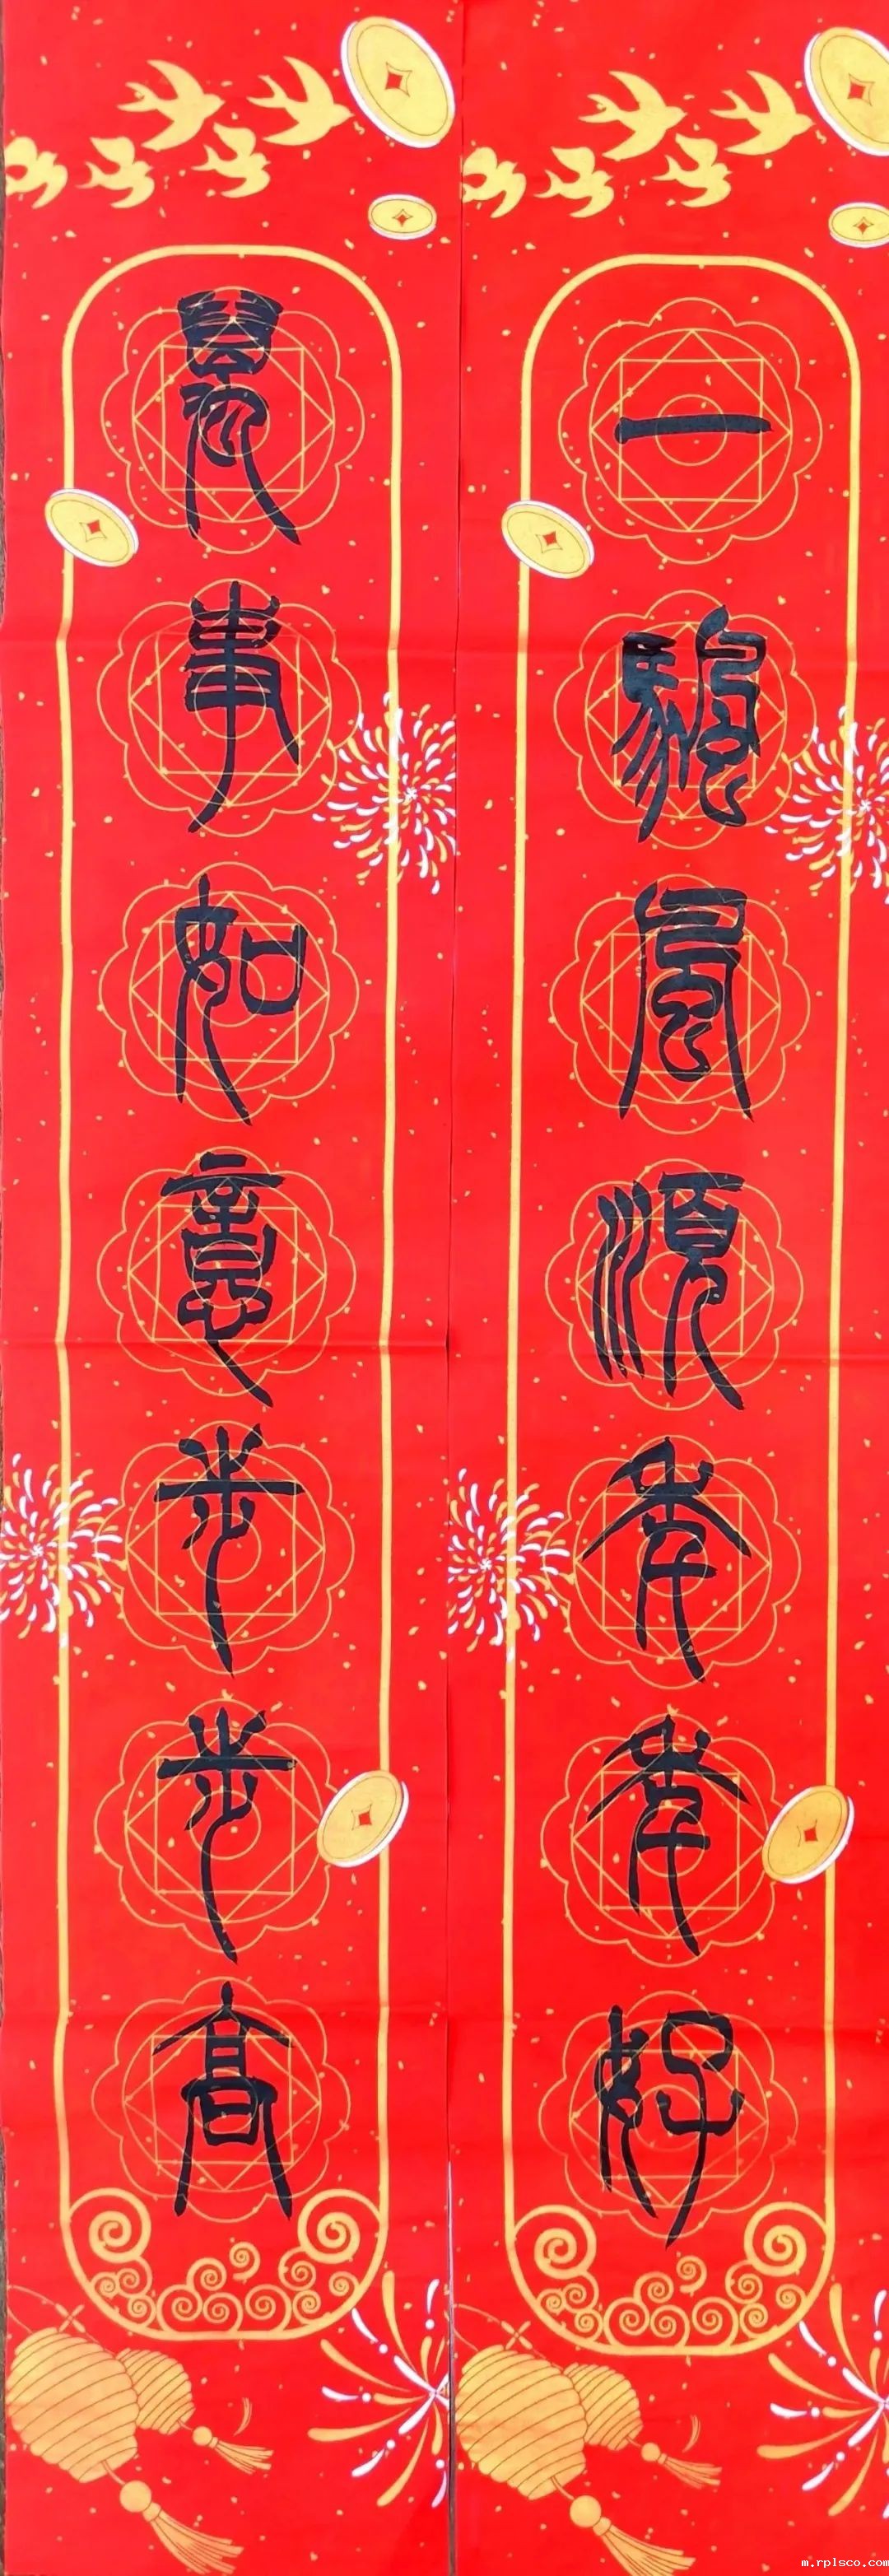 一帆风顺年年好
万事如意步步高
m.rplsco.com